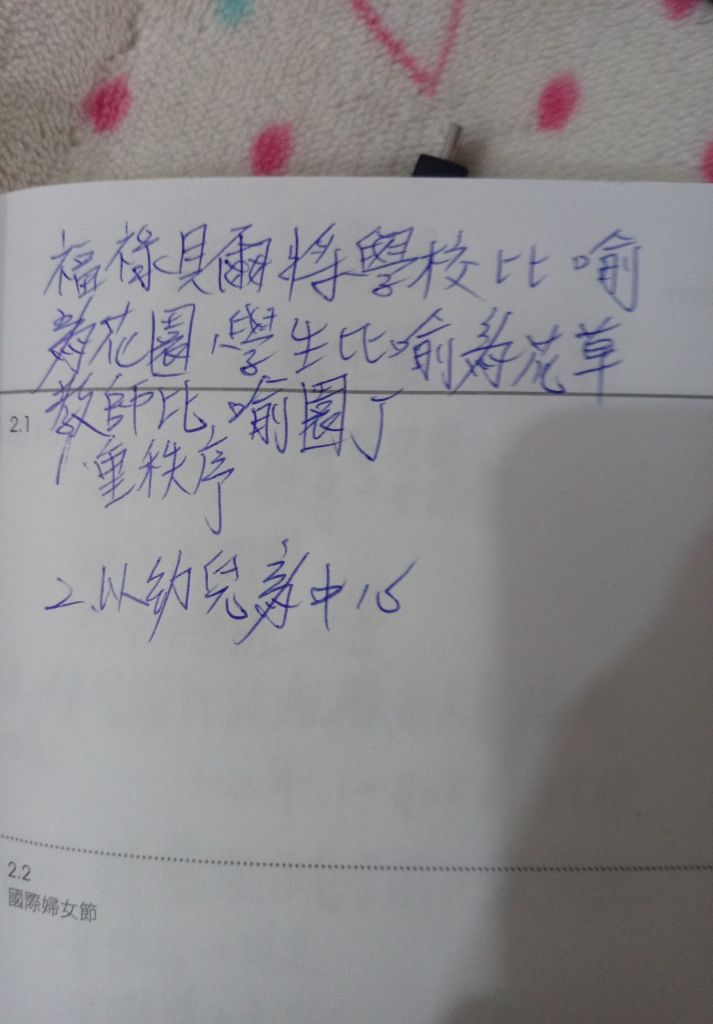 福祿貝爾將學校比喻
為花園、學生比喻為花草
教師比喻園丁
2.1
1.重秩序
2.以幼兒為中心
2.2
國際婦女節